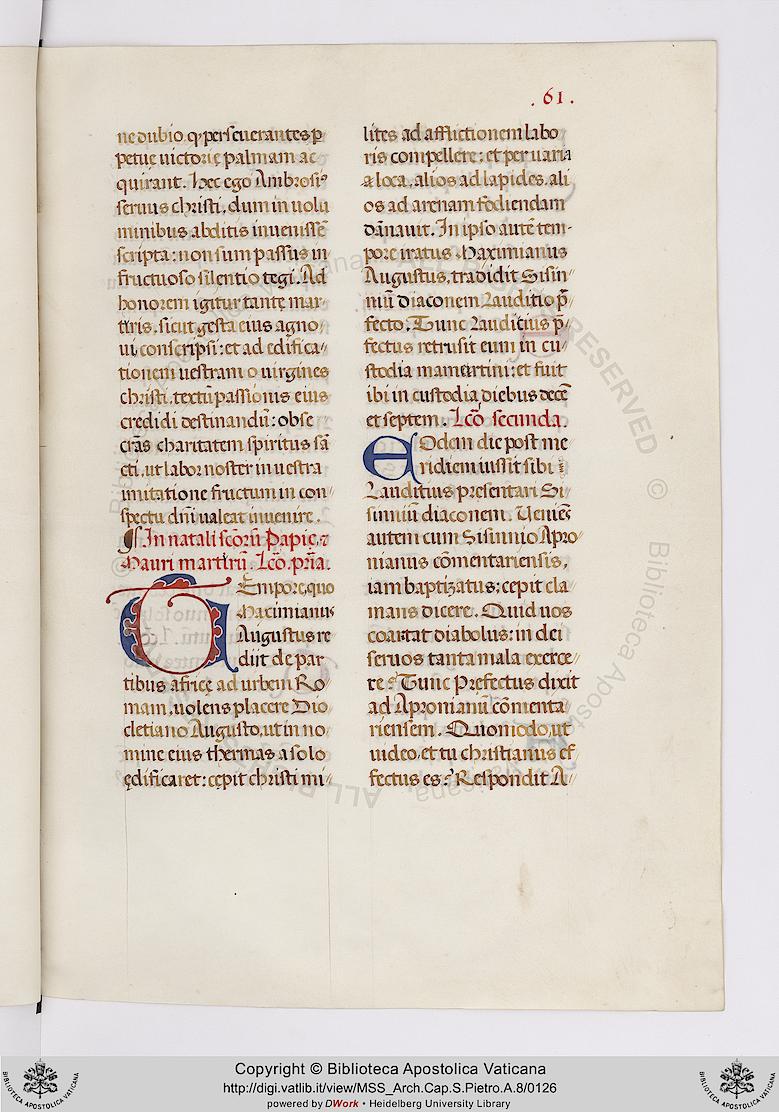 .61.
ne dubio ꝙ perseuerantes ꝑ
petuę uictorię palmam ac-
quirant. Hec ego Ambrosiꝰ
seruus christi, dum in uolu
minibus abditis inuenissē
scripta: non sum passus in/
fructuoso silentio tegi. Ad
honorem igitur tantę mar-
tiris, sicut gesta eius agno/
ui conscripsi: et ad edifica-
tionem uestram o uirgines
christi, textū passionis eius
credidi destinandū: obse/
crās charitatem spiritus sā
cti, ut labor noster in uestra
imitatione fructum in con/
spectu dn̄i ualeat inuenire.
¶ In natali sc̄orū Papię, ⁊
Mauri martirū. Lc̄o. pr̄ia.
TEmpore, quo
Maximianus
Augustus re
diit de par
tibus africę ad urbem Ro/
mam, uolens placere Dio
cletiano Augusto, ut in no/
mine eius thermas a solo
ędificaret: cępit christi mi/
lites ad afflictionem labo
ris compellere: et per uaria
loca, alios ad lapides, ali
os ad arenam fodiendam
dānauit. In ipso autē tem-
pore iratus Maximianus
Augustus, tradidit Sisin/
niū diaconem Lauditio p̄/
fecto. Tunc Lauditius p̄/
fectus retrusit eum in cu/
stodia mamertini: et fuit
ibi in custodia diebus decē
et septem. Lc̄o secunda.
EOdem die post me
ridiem iussit sibi
Lauditius presentari Si
sinnium diaconem. Ueniēs
autem cum Sisinnio Apro/
nianus cōmentariensis,
iam baptizatus: cepit cla
mans dicere. Quid uos
coartat diabolus: in dei
seruos tanta mala exerce/
re? Tunc Prefectus dixit
ad Apronianū cōmenta/
riensem. Quomodo, ut
uideo, et tu christianus ef
fectus es? Respondit A/
Copyright © Biblioteca Apostolica Vaticana
http://digi.vatlib.it/view/MSS_Arch.Cap.S.Pietro.A.8/0126
powered by DWork • Heidelberg University Library
BIBLIOTECA APOSTOLICA VATICANA
BIBLIOTECA APOSTOLICA VATICANA